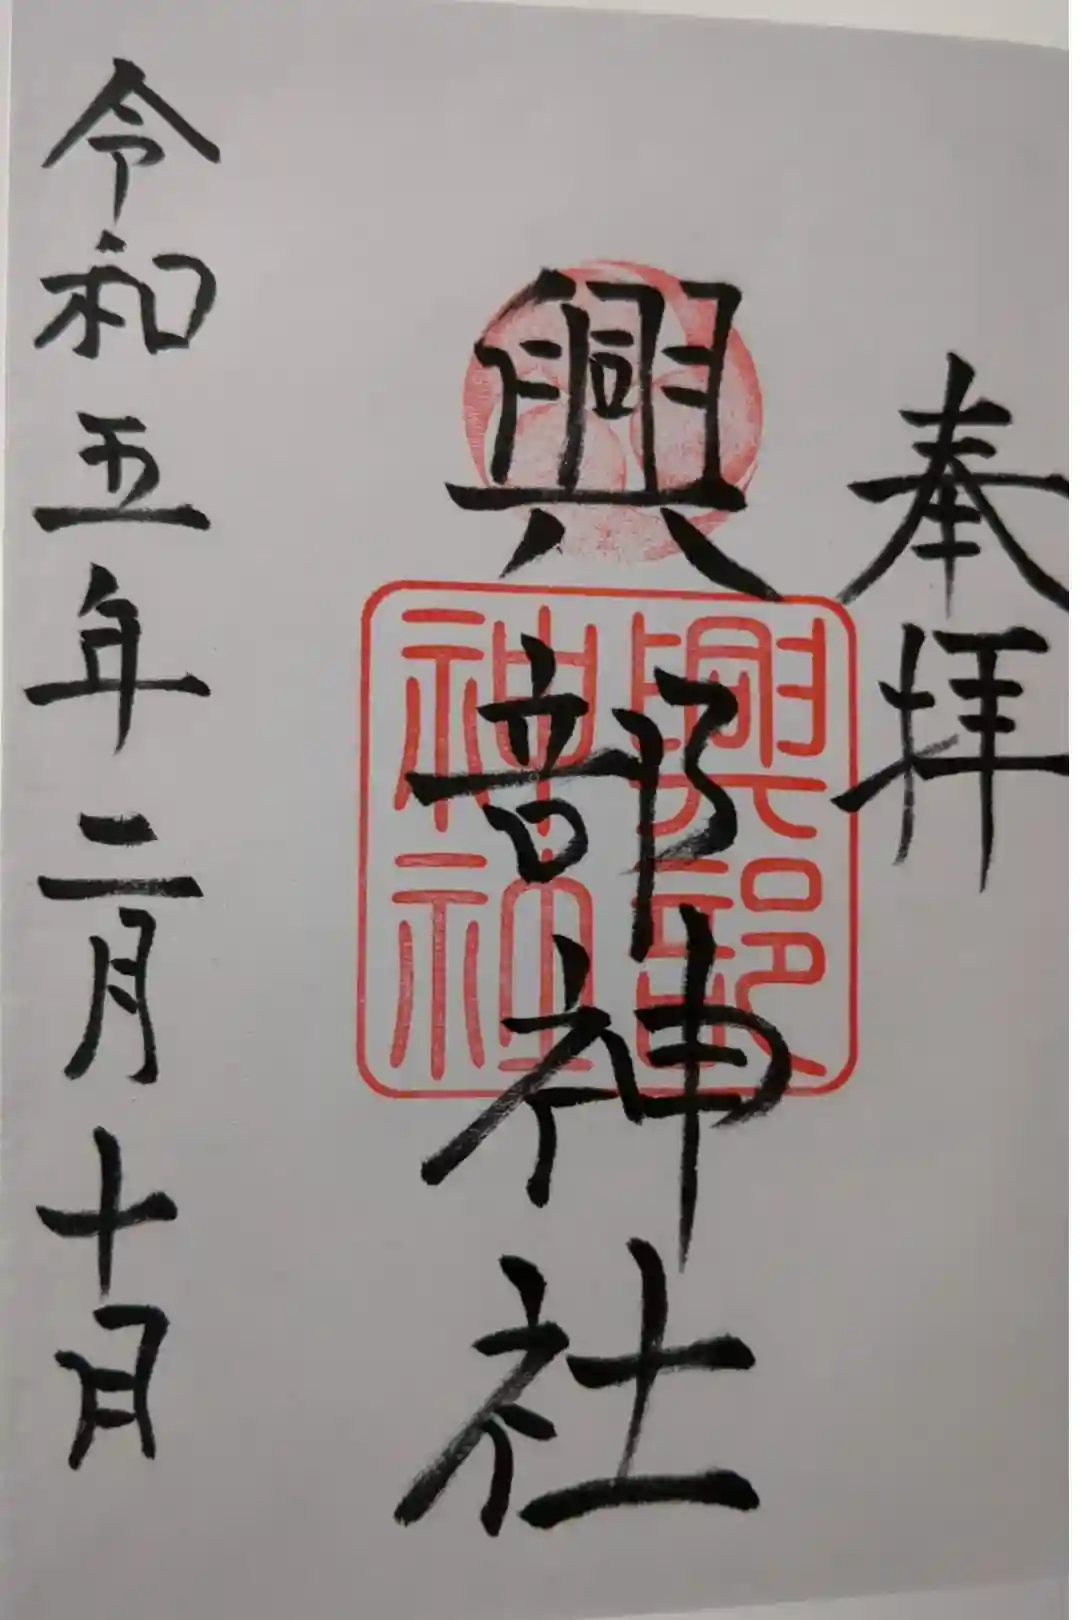 奉拝
興部神社
興部
神社
令和五年二月十日